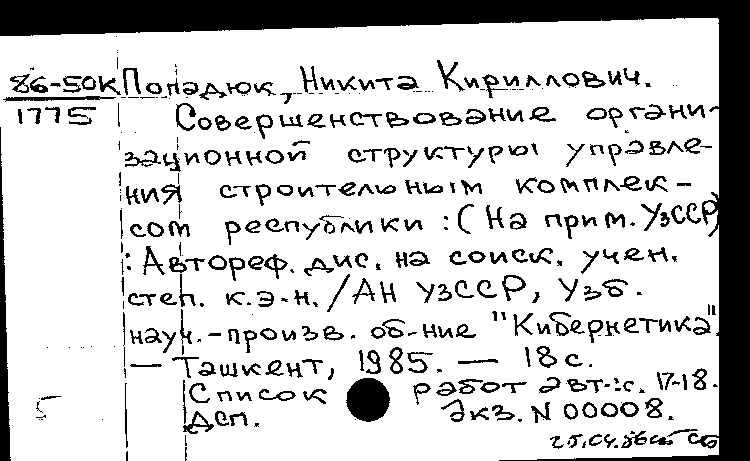 86-50к Попадюк, Никита Кириллович.
1775 Совершенствование органи-
зационной структуры управле-
ния строительным комплек-
сом республики : (На прим. УзССР)
: Автореф. дис. на соиск. учен.
степ. к.э.н. / АН УзССР, Узб.
науч.-произв. об-ние "Кибернетика".
— Ташкент, 1985. — 18 с.
Список работ авт.: с. 17-18.
Дсп. Экз. N 00008.
5
25.04.86